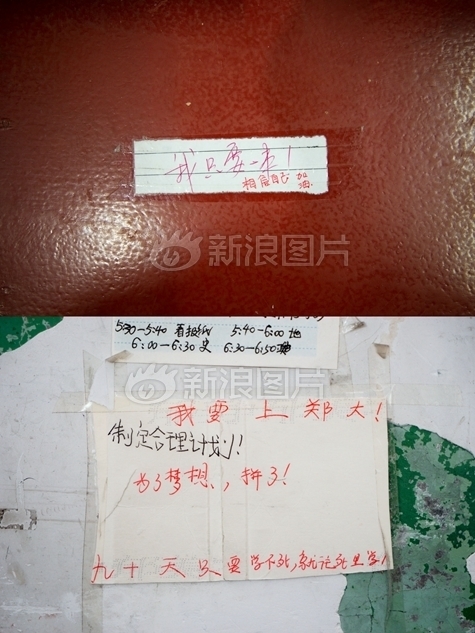 我只要一本!
相信自己 加油
新浪图片
5:30—5:40 看报纸 5:40—6:00 地
6:00—6:30 史 6:30—6:50
新浪图片
我要上郑大!
制定合理计划!
为了梦想，拼了!
九十天只要学不死，就往死里学!